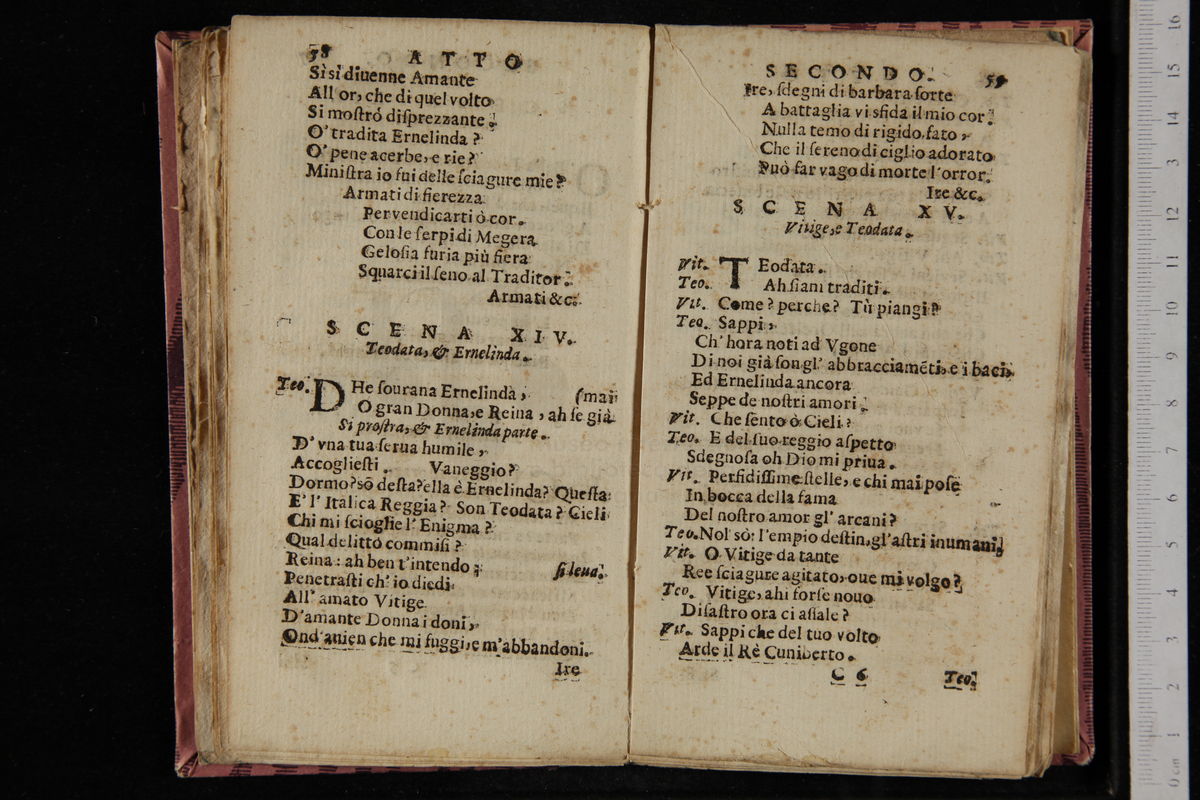 58 ATTO
Sì sì diuenne Amante
All or, che di quel volto
Si moſtró diſprezzante.
O' tradita Ernelinda?
O' pene acerbe, e rie?
Miniſtra io fui delle ſciagure mie?
Armati di fierezza
Per vendicarti ò cor.
Con le ſerpi di Megera
Geloſia furia più fiera
Squarci il ſeno al Traditor.
Armati &c.
SCENA XIV.
Teodata, & Ernelinda.
Teo. DHe ſourana Ernelinda, (mai
O gran Donna, e Reina, ah ſe già
Si proſtra, & Ernelinda parte.
D'vna tua ſerua humile,
Accoglieſti. Vaneggio?
Dormo? sō deſta? ella è Ernelinda? Queſta
E' l' Italica Reggia? Son Teodata? Cieli
Chi mi ſcioglie l' Enigma?
Qual delitto commiſi?
Reina: ah ben t'intendo; ſi leua.
Penetraſti ch' io diedi
All' amato Vitige
D'amante Donna i doni,
Ond'auien che mi fuggi, e m'abbandoni.
Ire
SECONDO. 59
Ire, ſdegni di barbara ſorte
A battaglia vi sfida il mio cor.
Nulla temo di rigido fato,
Che il ſereno di ciglio adorato
Può far vago di morte l'orror.
Ire &c.
SCENA XV.
Vitige, e Teodata.
Vit. TEodata.
Teo. Ah ſiam traditi.
Vit. Come? perche? Tù piangi?
Teo. Sappi,
Ch' hora noti ad Vgone
Di noi già ſon gl' abbracciamēti, e i baci,
Ed Ernelinda ancora
Seppe de noſtri amori.
Vit. Che ſento ò Cieli?
Teo. E del ſuo reggio aſpetto
Sdegnoſa oh Dio mi priua.
Vit. Perfidiſſime ſtelle, e chi mai poſe
In bocca della fama
Del noſtro amor gl' arcani?
Teo. Nol sò: l'empio deſtin, gl'aſtri inumani.
Vit. O Vitige da tante
Ree ſciagure agitato, oue mi volgo?
Teo. Vitige, ahi forſe nouo
Diſaſtro ora ci aſſale?
Vit. Sappi che del tuo volto
Arde il Rè Cuniberto.
C 6 Teo.